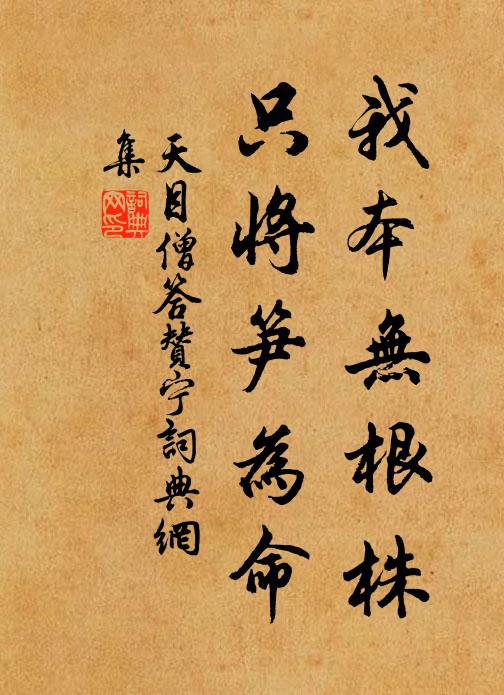 我本無根株
只將笋為命
天目僧答贊宁詞典網
集
詞典
网印